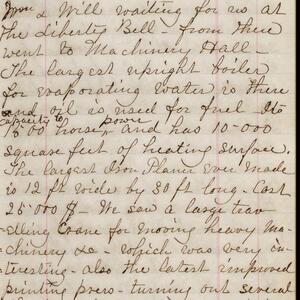 Mrs & Will waiting for us at
the Liberty Bell - from there
went to Machinery Hall -
The largest upright boiler
for evaporating water is there
and oil is used for fuel Its
capacity is power
1500 horse, and has 10-000
square feet of heating surface.
The largest Iron Planer Ever made
is 12 ft wide by 30 ft long - Cost
25-000 $ - We saw a large trav
elling Crane for moving heavy Ma-
chinery &c - which was very in-
teresting - also the latest improved
printing press - turning out several